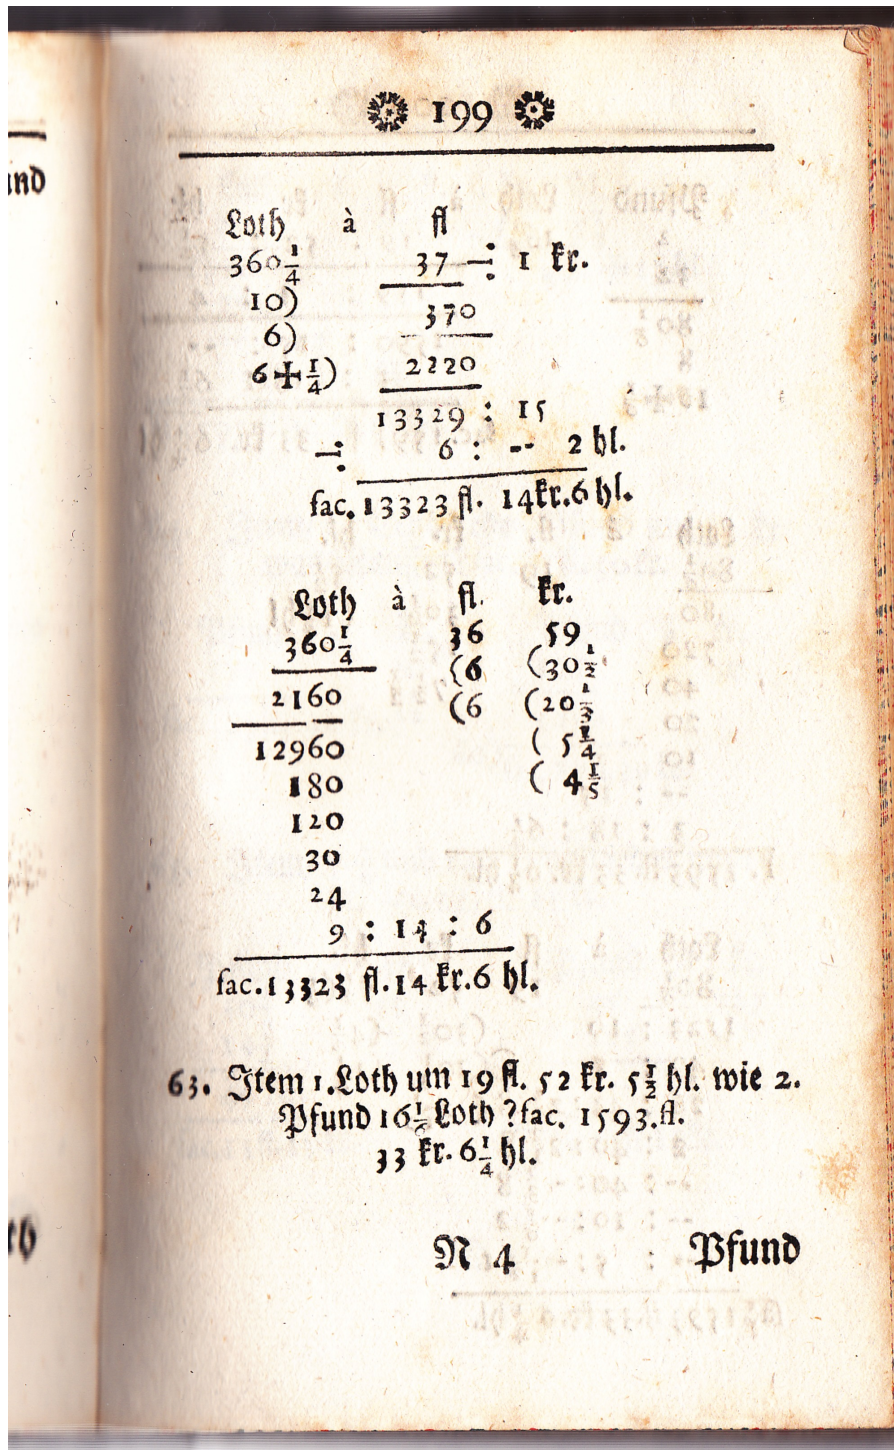 199
Loth à fl
360 1/4 37 –: 1 kr.
10) 370
6) 2220
6+1/4)
13329 : 15
–: 6 : -- 2 hl.
fac. 13323 fl. 14kr.6 hl.
Loth à fl. kr.
360 1/4 36 59
(6 (30 1/2
2160 (6 (20 1/3
12960 ( 5 1/4
180 ( 4 1/5
120
30
24
9 : 14 : 6
fac.13323 fl.14 kr.6 hl.
63. Item 1.Loth um 19 fl. 52 kr. 5 1/2 hl. wie 2.
Pfund 16 1/6 Loth ? fac. 1593.fl.
33 kr. 6 1/4 hl.
N 4 Pfund